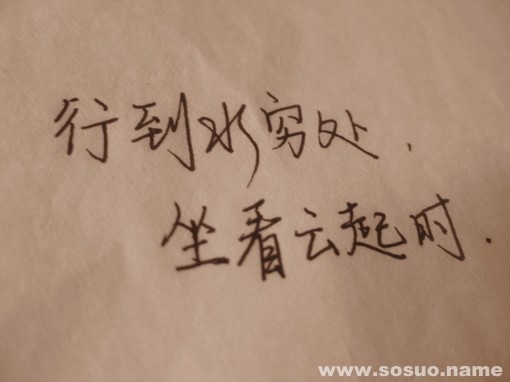 行到水穷处.
坐看云起时.
www.sosuo.name